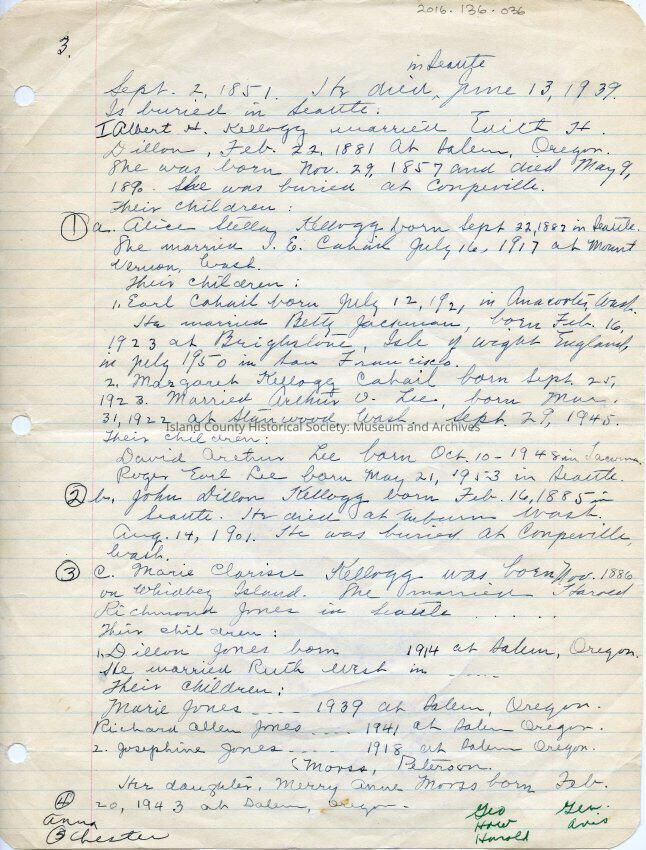 2016.136.036
3.
in Seattle
Sept. 2, 1851. He died, June 13, 1939.
Is buried in Seattle.
I Albert H. Kellogg married Edith H.
Dillon, Feb. 22, 1881 at Salem, Oregon.
She was born Nov. 29, 1857 and died May 9,
189 . She was buried at Coupeville.
Their children:
① a. Alice Stella Kellogg born Sept 22, 1882 in Seattle.
She married I. E. Cahail July 16, 1917 at Mount
Vernon, Wash.
Their children:
1. Earl Cahail born July 12, 1921 in Anacortes, Wash.
He married Betty Jackman, born Feb. 16,
1923 at Brighstone, Isle of Wight England,
in July 1950 in San Francisco.
2. Margaret Kellogg Cahail born Sept. 25,
1923. Married Arthur O. Lee, born Mar.
31, 1922 at Stanwood Wash. Sept. 29, 1945.
Island County Historical Society: Museum and Archives
Their children:
David Arthur Lee born Oct. 10 - 1948 in Tacoma
Roger Earl Lee born May 21, 1953 in Seattle.
② b. John Dillon Kellogg born Feb. 16, 1885 in
Seattle. He died at Auburn Wash.
Aug. 14, 1901. He was buried at Coupeville,
Wash.
③ C. Marie Clarisse Kellogg was born Nov. 1886
on Whidbey Island. She married Harold
Richmond Jones in Seattle . . . . .
Their children:
1. Dillon Jones born 1914 at Salem, Oregon.
He married Ruth West in - - - -
Their children:
Marie Jones - - - - 1939 at Salem, Oregon.
Richard Allen Jones - - - - 1941 at Salem Oregon.
2. Josephine Jones - - - - 1918 at Salem Oregon.
(Morss, Peterson.
Her daughter, Merry Anne Morss born Feb.
④ 20, 1943 at Salem, Oregon.
Anna
Chester
Geo
How
Harold
Gen.
Avis